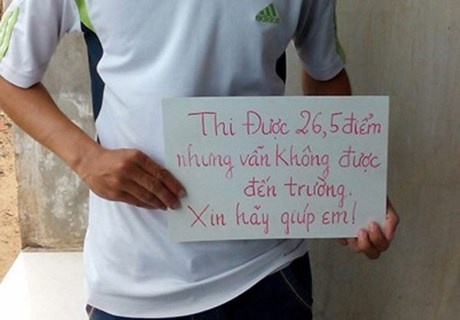 adidas
Thi Được 26,5 điểm
nhưng vẫn Không được
đến trường.
Xin hãy giúp em!